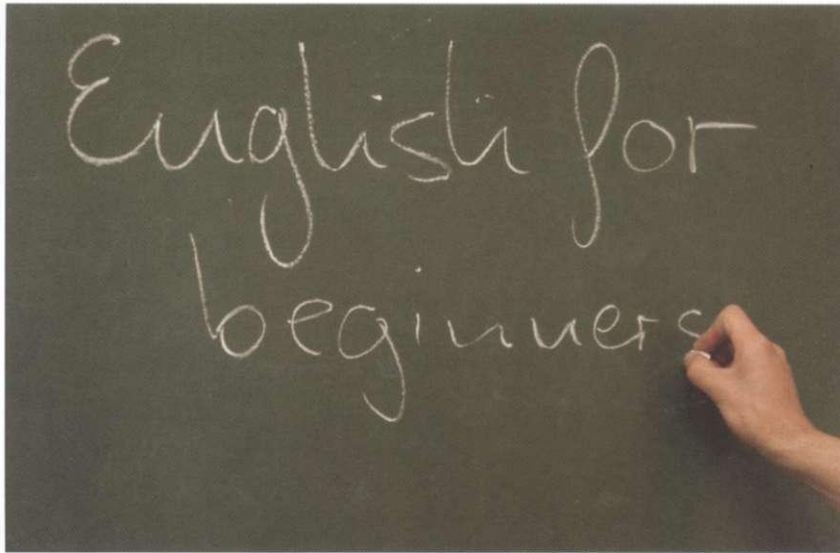 English for
beginners